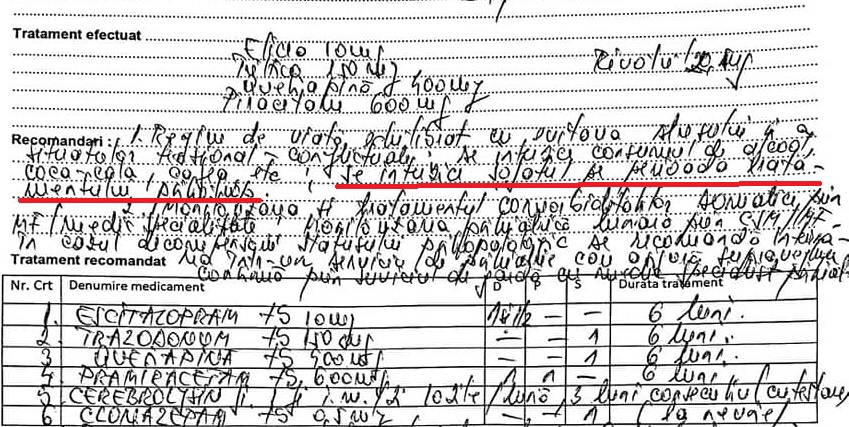 Tratament efectuat
Elicea 10 mg
Trittico 150 mg Rivotril
Quetiapină 400 mg
Piracetam 600 mg
Recomandari: 1. Regim de viață echilibrat cu evitarea stresului și a
situațiilor tensional-conflictuale; se interzice consumul de alcool,
coca-cola, cafea, etc; se interzice șofatul pe perioada trata-
mentului psihotrop.
2. Monitorizarea și tratamentul comorbidităților somatice prin
MF/medic specialitate. Monitorizarea psihiatrică lunară prin CSM/MF.
În cazul decompensării statusului psihopatologic se recomandă interna-
Tratament recomandat rea într-un serviciu de psihiatrie
continuă prin serviciul de gardă cu medic specialist psihiatru
Nr. Crt Denumire medicament D P S Durata tratament
1. ESCITALOPRAM TS 10 mg 1 și 1/2 - - 6 luni.
2 TRAZODONUM TS 150 mg - - 1 6 luni.
3 QUETIAPINA TS 400 mg - - 1 6 luni.
4 PRAMIRACETAM TS 600 mg 1 1 - 6 luni
5 CEREBROLYSIN f. 1 f i.m./zi 10 zile/lună 3 luni consecutiv
6 CLONAZEPAM TS 0,5 mg - - 1 (la nevoie)